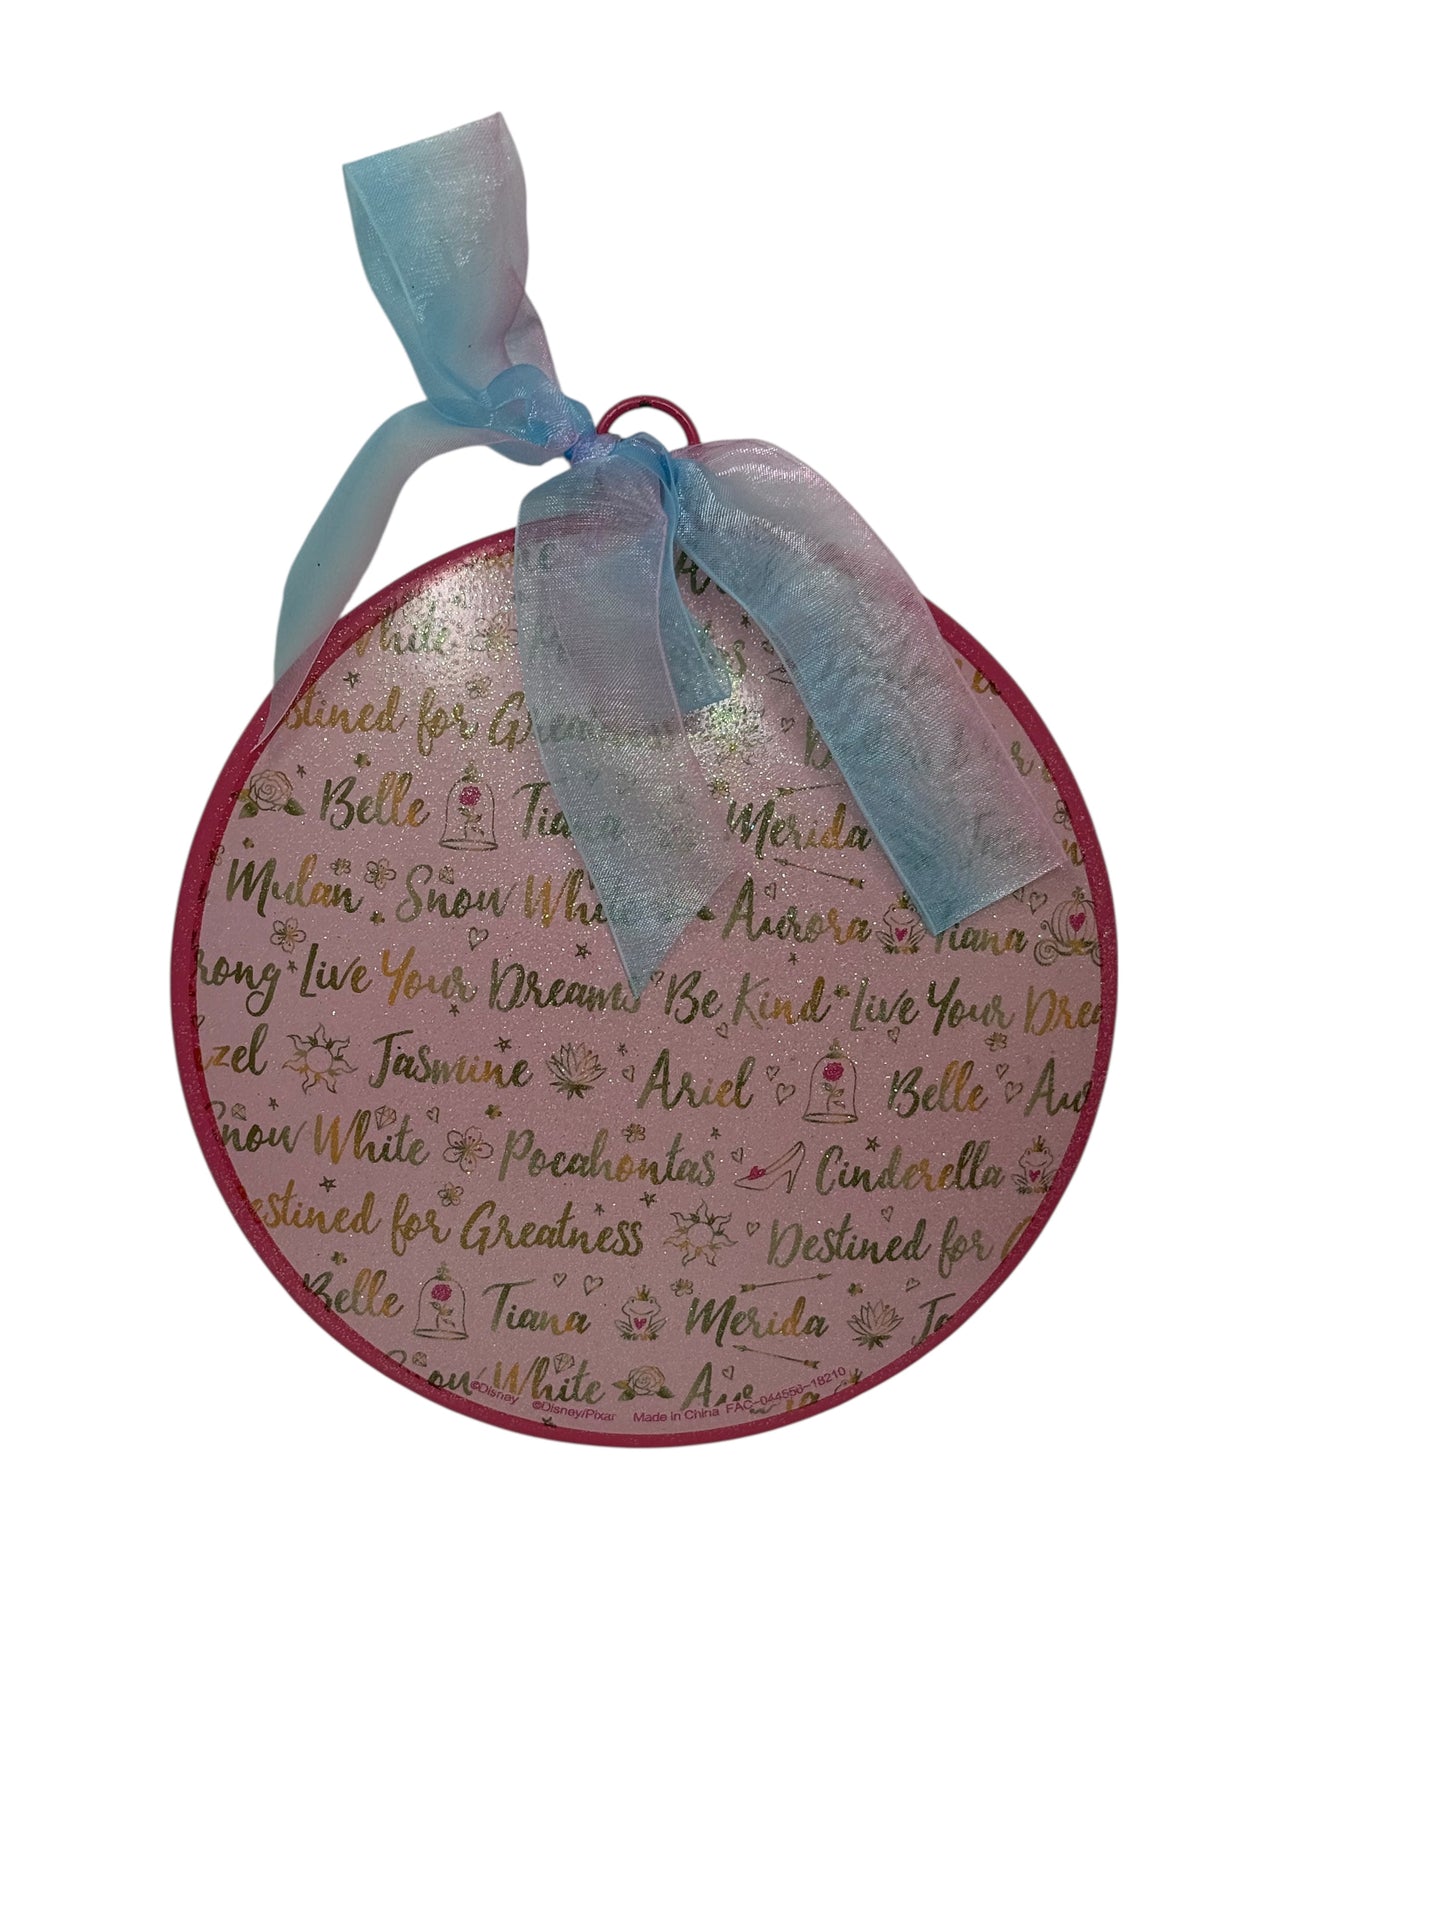 White
for Greatness
Belle Tiana Merida
Mulan Snow White Aurora Tiana
Live Your Dreams Be Kind Live Your
Jasmine Ariel Belle
Snow White Pocahontas Cinderella
Destined for Greatness Destined for
Belle Tiana Merida
Snow White
©Disney ©Disney/Pixar Made in China FAC-044556-18210